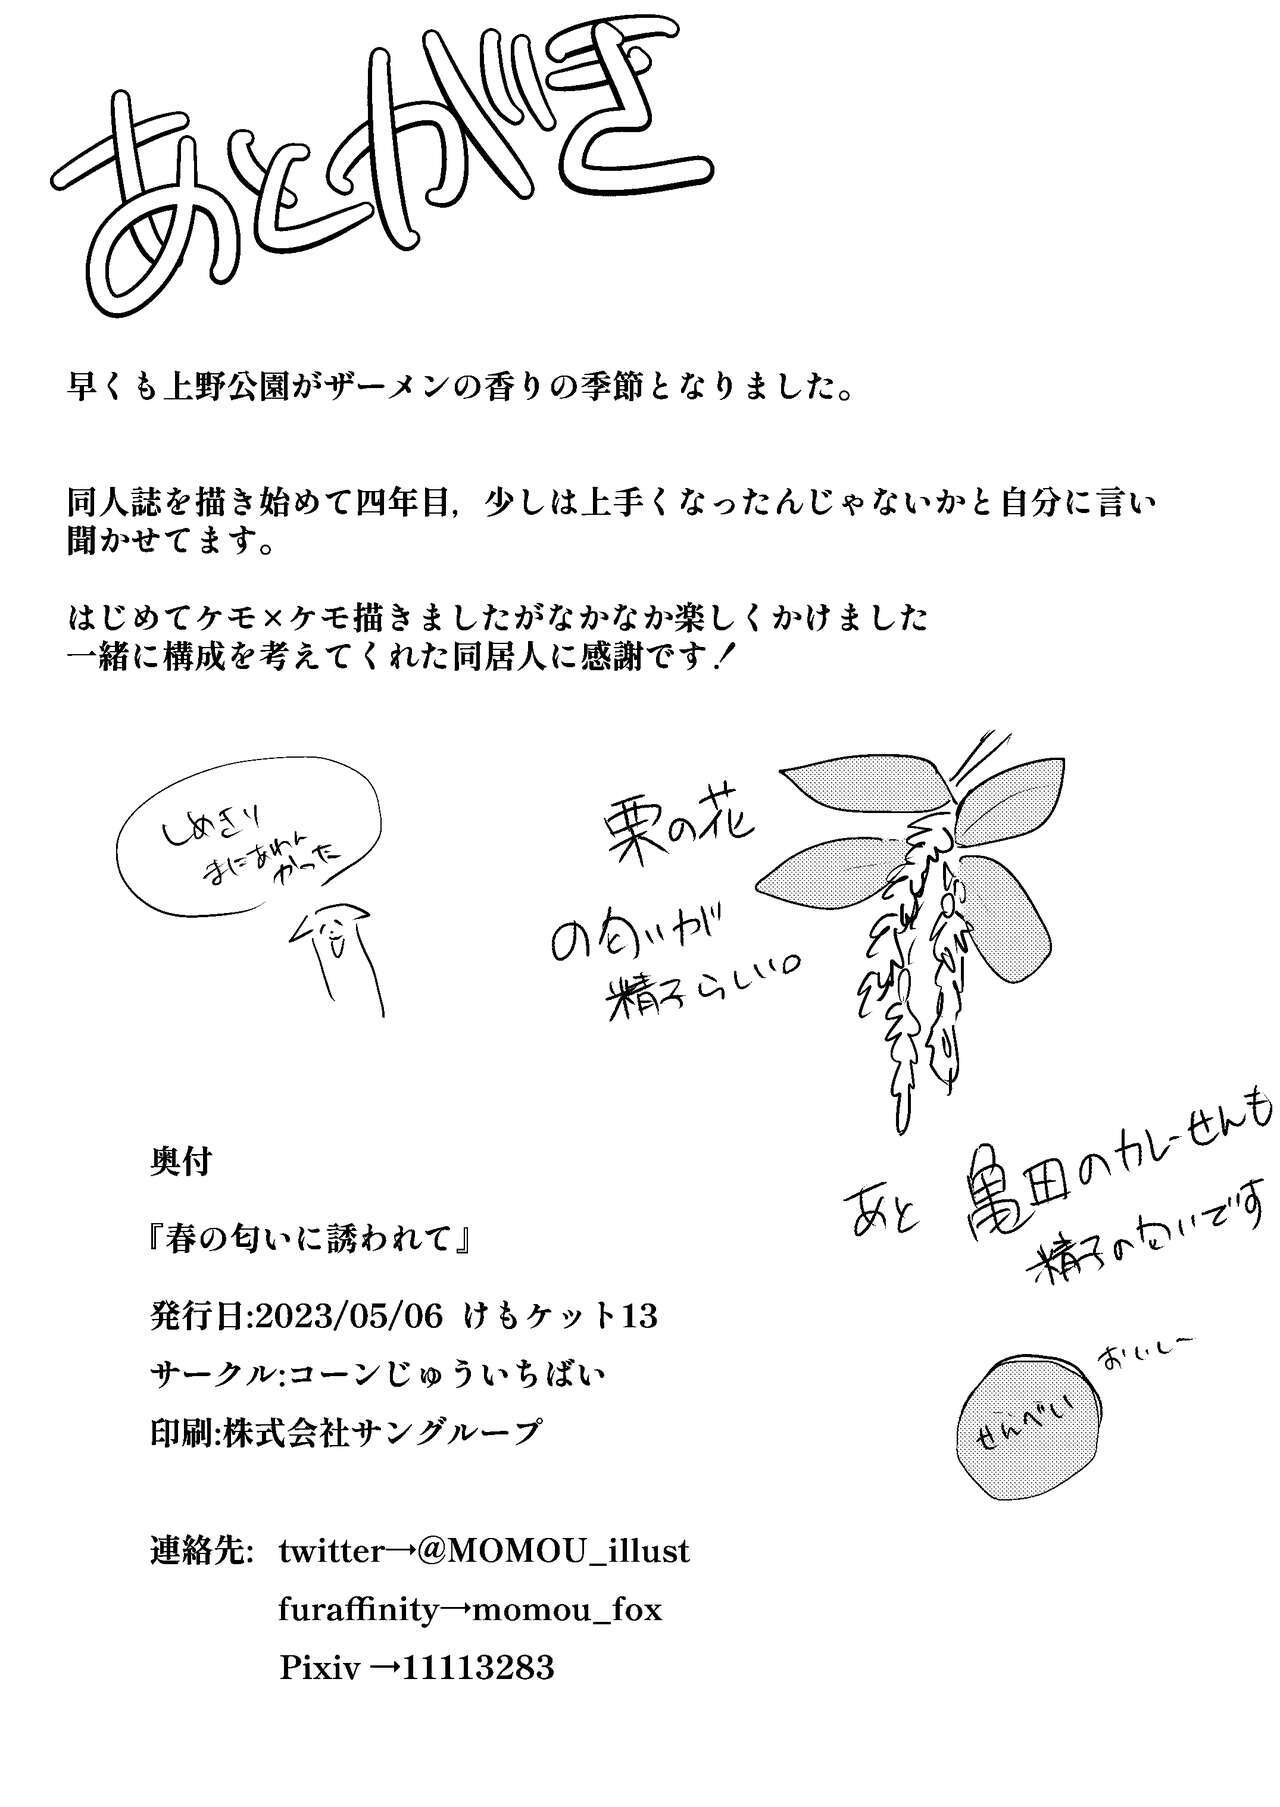 あとがき
早くも上野公園がザーメンの香りの季節となりました。
同人誌を描き始めて四年目，少しは上手くなったんじゃないかと自分に言い
聞かせてます。
はじめてケモ×ケモ描きましたがなかなか楽しくかけました
一緒に構成を考えてくれた同居人に感謝です！
しめきり
まにあわん
かった
栗の花
の匂いが
精子らしい。
あと 亀田のカレーせんも
精子の匂いです
おいしー
せんべい
奥付
『春の匂いに誘われて』
発行日:2023/05/06 けもケット13
サークル:コーンじゅういちばい
印刷:株式会社サングループ
連絡先: twitter→@MOMOU_illust
furaffinity→momou_fox
Pixiv →11113283